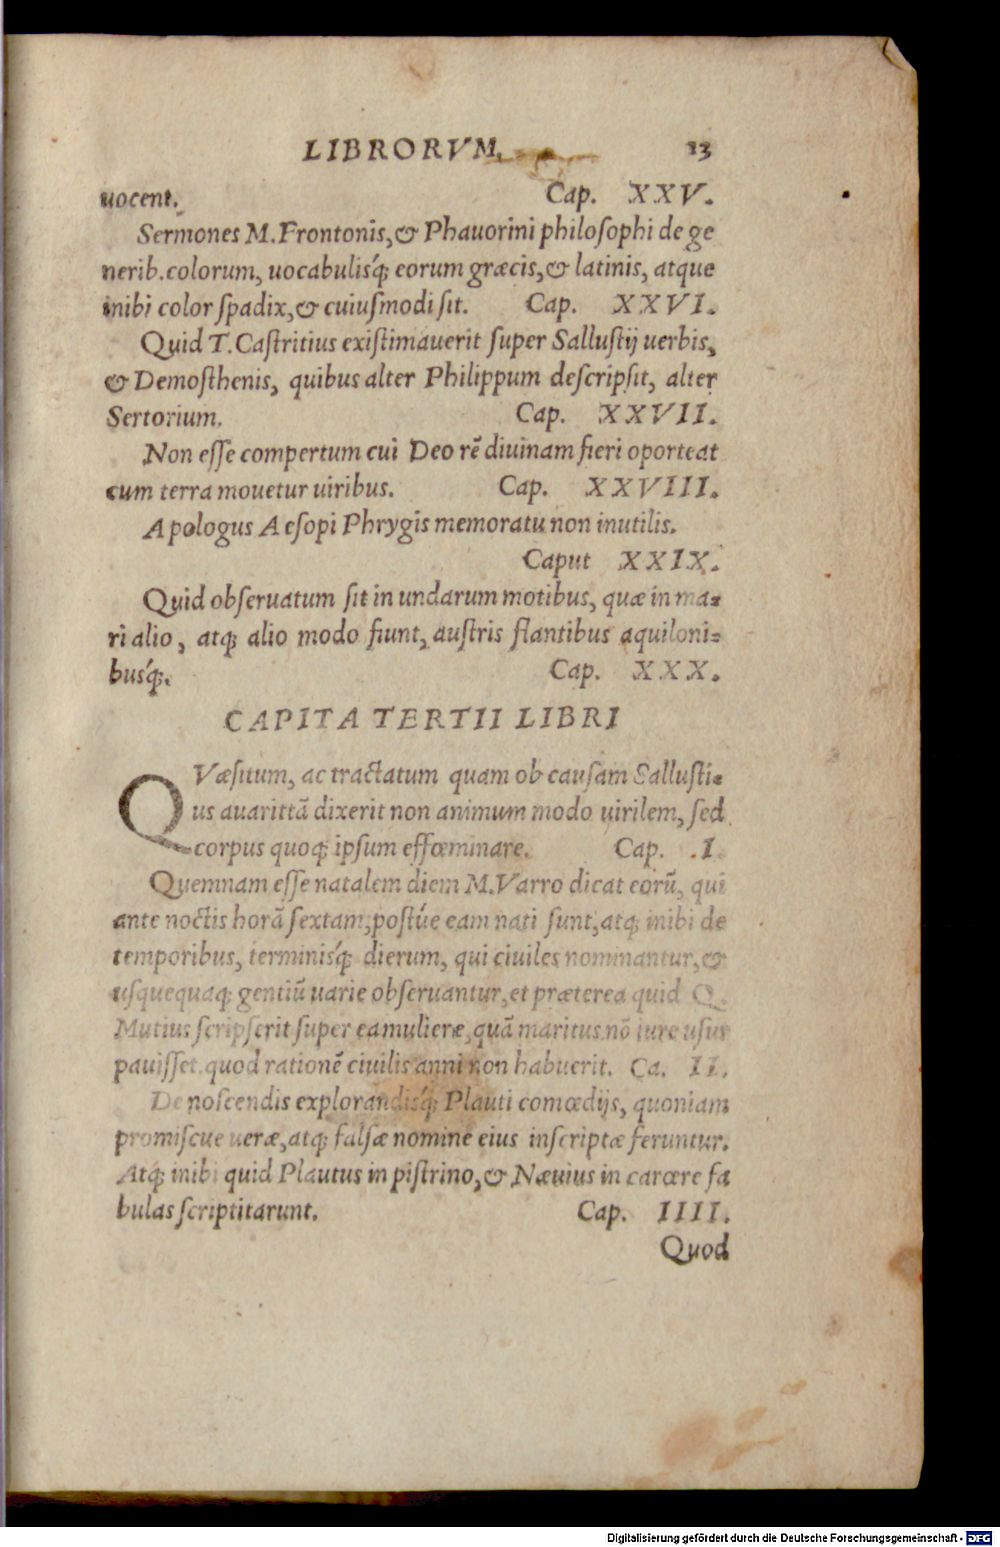 LIBRORVM. 13
uocent. Cap. XXV.
Sermones M. Frontonis, & Phauorini philoſophi de ge
nerib. colorum, uocabulisq́; eorum græcis, & latinis, atque
inibi color ſpadix, & cuiuſmodi ſit. Cap. XXVI.
Quid T. Caſtritius exiſtimauerit ſuper Salluſtij uerbis,
& Demoſthenis, quibus alter Philippum deſcripſit, alter
Sertorium. Cap. XXVII.
Non eſſe compertum cui Deo rē diuinam fieri oporteat
cum terra mouetur uiribus. Cap. XXVIII.
Apologus Aeſopi Phrygis memoratu non inutilis.
Caput XXIX.
Quid obſeruatum ſit in undarum motibus, quæ in ma=
ri alio, atq; alio modo fiunt, auſtris flantibus aquiloni=
busq́;. Cap. XXX.
CAPITA TERTII LIBRI
QVæſitum, ac tractatum quam ob cauſam Salluſti=
us auarittā dixerit non animum modo uirilem, ſed
corpus quoq; ipſum effœminare. Cap. I.
Quemnam eſſe natalem diem M. Varro dicat eorū, qui
ante noctis horā ſextam, poſtúe eam nati ſunt, atq; inibi de
temporibus, terminisq́; dierum, qui ciuiles nominantur, &
uſquequaq; gentiū uarie obſeruantur, et præterea quid Q.
Mutius ſcripſerit ſuper ea muliere, quā maritus nō iure uſur
pauiſſet. quod rationē ciuilis anni non habuerit. Ca. II.
De noſcendis explorandisq́; Plauti comœdijs, quoniam
promiſcue ueræ, atq; falſæ nomine eius inſcriptæ feruntur.
Atq; inibi quid Plautus in piſtrino, & Næuius in carcere fa
bulas ſcriptitarunt. Cap. IIII.
Quod
Digitalisierung gefördert durch die Deutsche Forschungsgemeinschaft - DFG